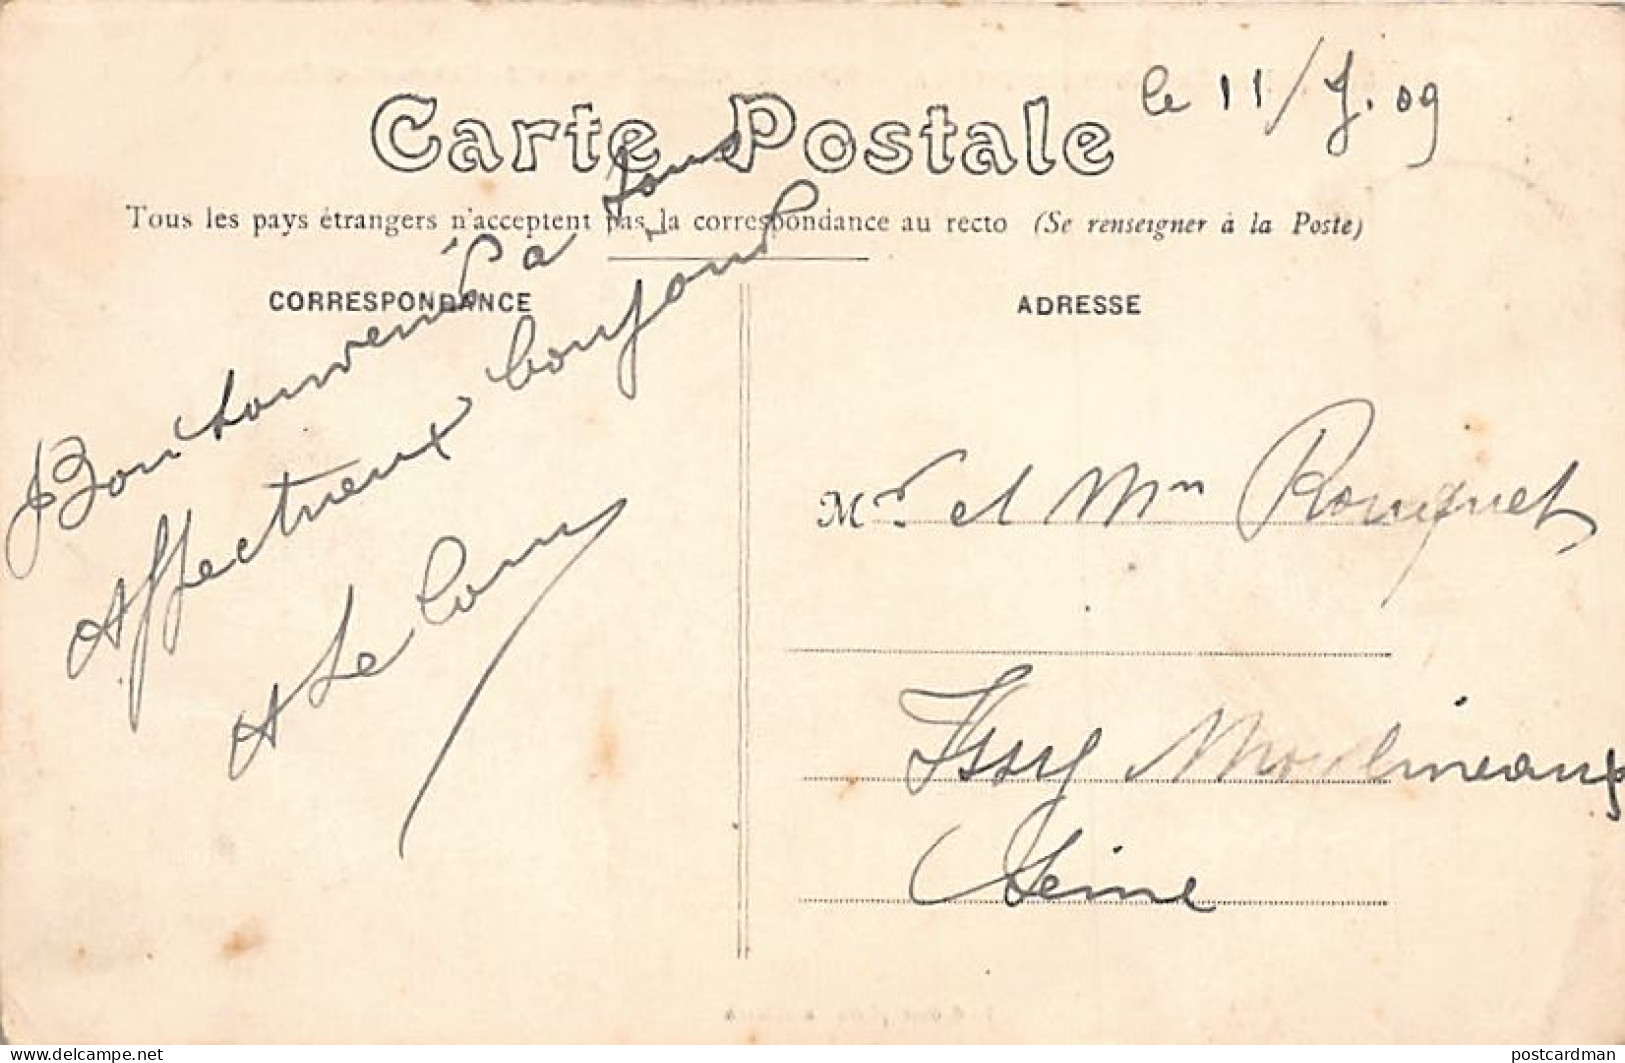 le 11/7.09
Carte Postale
Tous les pays étrangers n'acceptent pas la correspondance au recto (Se renseigner à la Poste)
CORRESPONDANCE
Bon souvenir à tous
Affectueux bonjour
A Le
ADRESSE
Mr et Mm Rouquet
Issy Moulineaux
Seine
postcardman